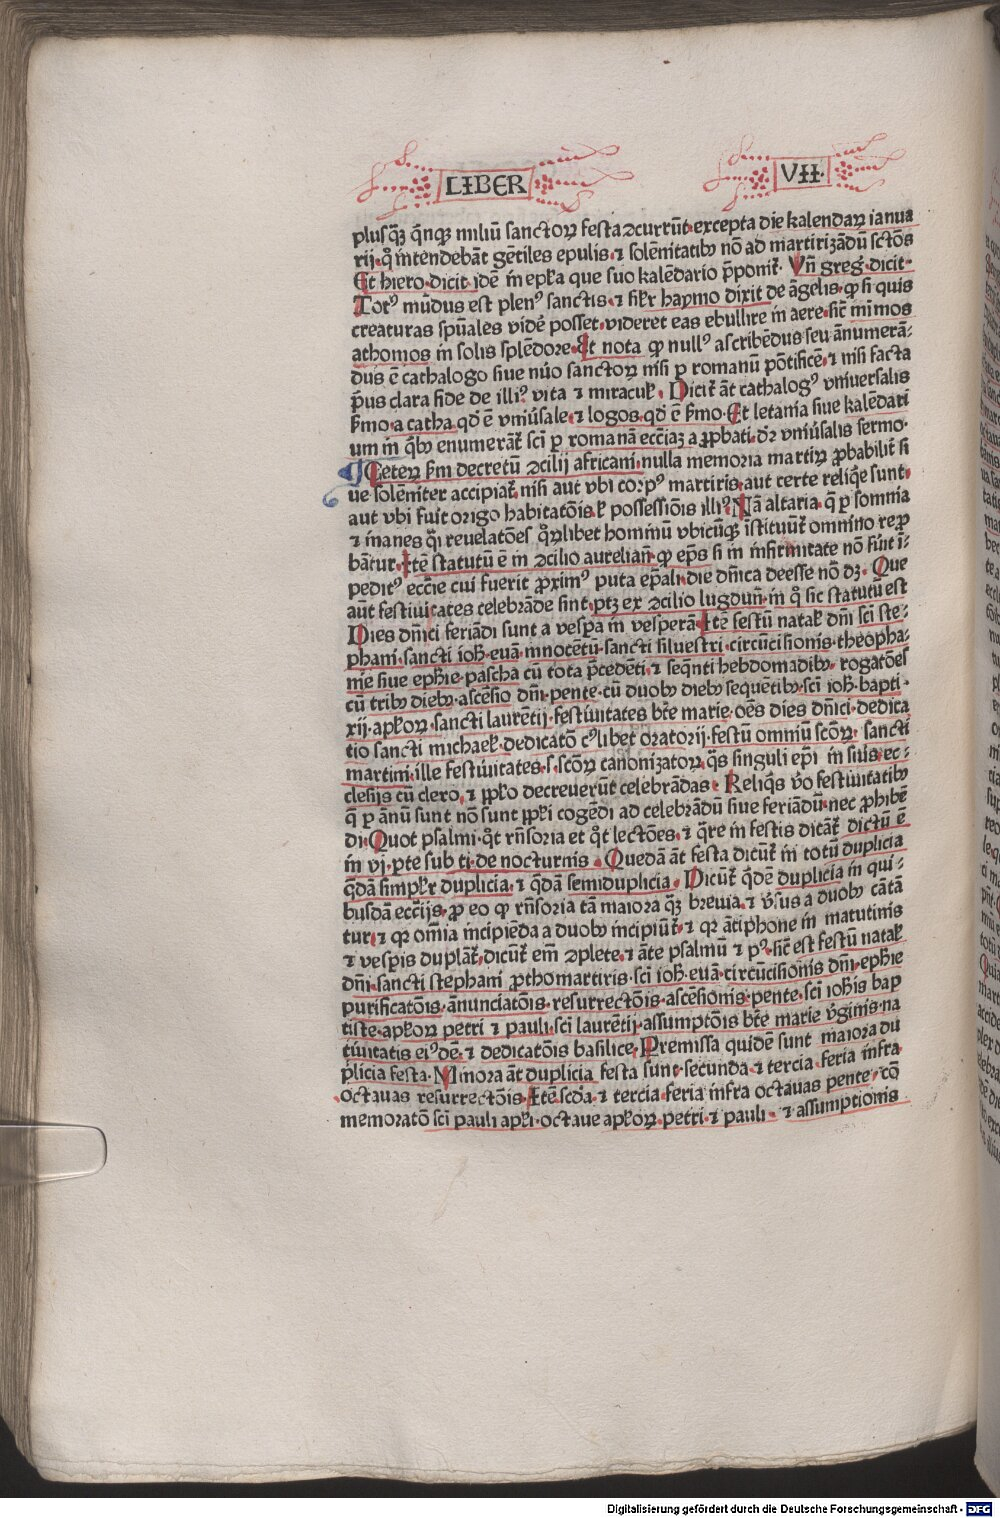 LIBER VII·
plusq̃ꝫ q̃nqꝫ miliū sanctoꝝ festa ꝯcurrūt·excepta die kalendaꝝ ianua
rij·q̊ intendebāt gētiles epulis·⁊ solēnitatibꝰ nō ad martirizādū sctōs
Et hiero·dicit idē in epl̄a que suo kalēdario p̄ponit̉· Vñ greg̉·dicit·
Totꝰ mūdus est plenꝰ sanctis·⁊ sil̉r haymo dixit de āgelis·ꝙ si quis
creaturas spūales vidē posset·videret eas ebullire in aere·sic̄ mīmos
athomos in solis splēdore·Et nota ꝙ nullꝰ ascribēdus seu ānumerā⸗
dus ē cathalogo siue nūo sanctoꝝ nisi ꝑ romanū pōtificē·⁊ nisi facta
p̄us clara fide de illiꝰ vita ⁊ miracul̉· Dicit̉ āt cathalogꝰ vniuersalis
s̉mo·a catha·qd̄ ē vniūsale·⁊ logos·qd̄ ē s̉mo·Et letania siue kalēdari
um in q̊bꝰ enumerāt̉ sc̄i ꝑ romanā ecc̄iaꝫ a ꝓpbati·dr̄ vniūsalis sermo·
¶ Ceteꝝ s̉m decretū ꝯcilij africani·nulla memoria martiꝝ ꝓbabilit̉ si
ue solēniter accipiat̉·nisi aut vbi corpꝰ martiris·aut certe reliq̃e sunt·
aut vbi fuit origo habitatōis·l̉ possessiōis illiꝰ·Nā altaria·q̃ ꝑ somnia
⁊ inanes q̃i reuelatōes q̊ꝝlibet hominū vbicūqꝫ īstituūt̉ omnino repꝓ
bātur·Itē statutū ē in ꝯcilio aurelian̄·ꝙ ep̄s si in infirmitate nō fūit ī⸗
peditꝰ ecc̄ie cui fuerit ꝓximꝰ puta ep̄ali·die dn̄ica deesse nō dꝫ· Que
aūt festiuitates celebrāde sint·ptꝫ ex ꝯcilio lugdun̄·in q̊ sic statutū est
Dies dn̄ici feriādi sunt a vesp̄a in vesperā·Itē festū natal̉ dn̄i sc̄i ste⸗
phani·sancti ioh̄·euā·innocētū·sancti siluestri·circūcisionis·theopha⸗
nie siue eph̄ie·pascha cū tota p̄cedēti·⁊ seq̃nti hebdomadibꝰ·rogatōes
cū tribꝰ diebꝰ·ascēsio dn̄i·pente·cū duobꝰ diebꝰ sequētibꝰ·sc̄i ioh̄·bapti·
xij·apl̉oꝝ·sancti laurētij·festiuitates btē marie·oēs dies dn̄ici·dedica
tio sancti michael̉·dedicatō cꝰlibet oratorij·festū omniū sc̄oꝝ· sancti
martini·ille festiuitates·s·sc̄oꝝ canonizatoꝝ·q̃s singuli ep̄i in suis ec⸗
clesijs cū clero·⁊ ꝓpl̉o decreuerūt celebrādas· Reliq̃s v̉o festiuitatibꝰ
q̃ ꝑ ānū sunt nō sunt ꝓpl̉i cogēdi ad celebrādū siue feriādū·nec ꝓhibē
di·Quot psalmi·q̊t rn̄soria et q̊t lectōes·⁊ q̃re in festis dicāt̉ dictū ē
in vj·pte sub ti·de nocturnis· Quedā āt festa dicūt̉ in totū duplicia
q̃dā simpl̉r duplicia·⁊ q̃dā semiduplicia· Dicūt̉ q̃dē duplicia in qui⸗
busdā ecc̄ijs·ꝓ eo ꝙ rn̄soria tā maiora q̃ꝫ breuia·⁊ v̉sus a duobꝰ cātā
tur·⁊ qꝛ omīa incipiēda a duobꝰ incipiūt̉·⁊ qꝛ ātiphone in matutinis
⁊ vesp̄is duplāt̉·dicūt̉ em̄ ꝯplete·⁊ āte psalmū ⁊ pꝰ·sic̄ est festū natal̉
dn̄i·sancti stephani ꝓthomartiris·sc̄i ioh̄·euā·circūcisionis dn̄i·eph̄ie
purificatōis·ānunciatōis·resurrectōis·ascēsionis·pente·sc̄i ioh̄is bap
tiste·apl̉oꝝ petri ⁊ pauli·sc̄i laurētij·assumptōis btē marie v̉ginis·na
tiuitatis eiꝰdē·⁊ dedicatōis basilice·Premissa quidē sunt maiora du
plicia festa·Minora āt duplicia festa sunt·secunda·⁊ tercia·feria infra
octauas resurrectōis·Itē sc̄da·⁊ tercia·feria infra octauas pente·cō
memoratō sc̄i pauli apl̉i·octaue apl̉oꝝ·petri·⁊ pauli·⁊ assumptionis
Digitalisierung gefördert durch die Deutsche Forschungsgemeinschaft - DFG